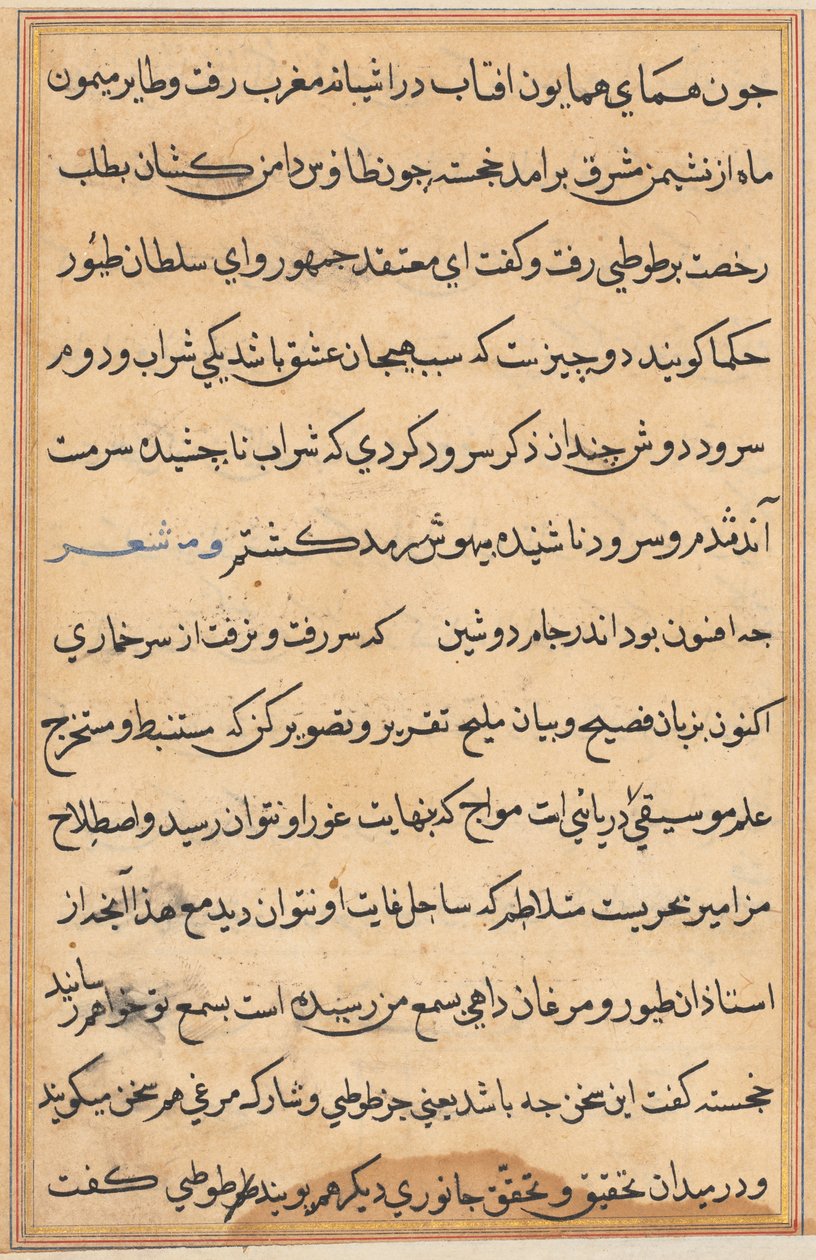 جون همای همایون افتاب در اشیانه مغرب رفت و طایر میمون
ماه از نشیمن مشرق برامد خجسته جون طاوس دامن کشان بطلب
رخصت بر طوطی رفت و کفت ای معتقد جمهور و ای سلطان طیُور
حکما کویند دو چیزست که سبب هیجان عشق باشد یکی شراب و دوم
سرود دوش چندان ذکر سرود کردی که شراب ناچشیده سرمست
آن شدم و سرود ناشنیده بیهوش سرمد کشتم و مه شعر
جه افسون بود اندر جام دوشین که سر رفت و نرفت از سر خماری
اکنون بزبان فصیح و بیان ملیح تقریر و تصویر کن که مستنبط و مستخرج
علم موسیقی دریائی است مواج که بنهایت غور او نتوان رسید و اصطلاح
مزامیر بحریست متلاطم که ساحل غایت او نتوان دید مع هذا آنجه از
استاذان طیور و مرغان داهی بسمع من رسیده است بسمع تو خواهم رسانید
خجسته کفت این سخن جه باشد یعنی جز طوطی و شارک مرغی هم سخن میکویند
و در میدان تحقیق و تحقّق جانوری دیکر هم پویند طوطی کفت